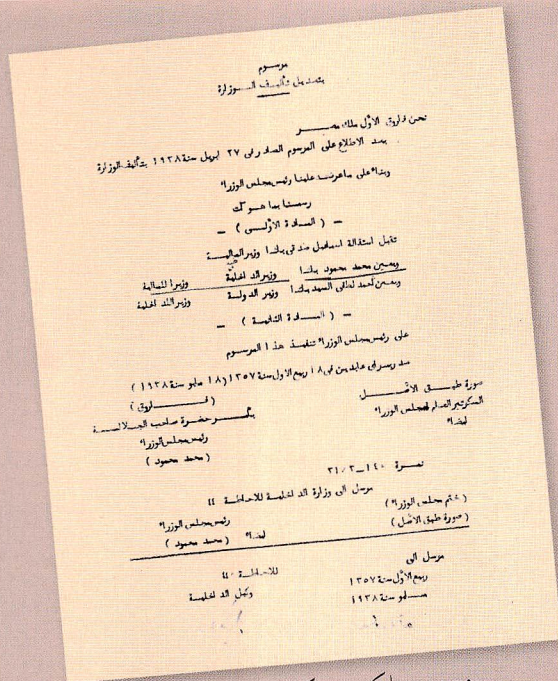 مرسوم
بتعديل تأليف الوزارة
نحن فاروق الأول ملك مصر
بعد الاطلاع على المرسوم الصادر فى ٢٧ ابريل سنة ١٩٣٨ بتأليف الوزارة
وبناء على ما عرضه علينا رئيس مجلس الوزراء
رسمنا بما هو آت
– ( المادة الأولى ) –
تقبل استقالة اسماعيل صدقى باشا وزير المالية
ويعين محمد محمود باشا وزير الداخلية وزيرا للمالية
ويعين أحمد لطفى السيد باشا وزير الدولة وزير الداخلية
– ( المادة الثانية ) –
على رئيس مجلس الوزراء تنفيذ هذا المرسوم
صدر بسراى عابدين فى ١٨ ربيع الأول سنة ١٣٥٧ ( ١٨ مايو سنة ١٩٣٨ )
صورة طبق الأصل ( فاروق )
السكرتير العام لمجلس الوزراء بأمر حضرة صاحب الجلالة
امضاء رئيس مجلس الوزراء
( محمد محمود )
نمرة ١٤٠–٣١/٢
مرسل الى وزارة الداخلية للاحاطة ،،
( ختم مجلس الوزراء ) رئيس مجلس الوزراء
( صورة طبق الأصل ) امضاء ( محمد محمود )
مرسل الى للاحاطة ،،
ربيع الأول سنة ١٣٥٧ وكيل الداخلية
مايو سنة ١٩٣٨